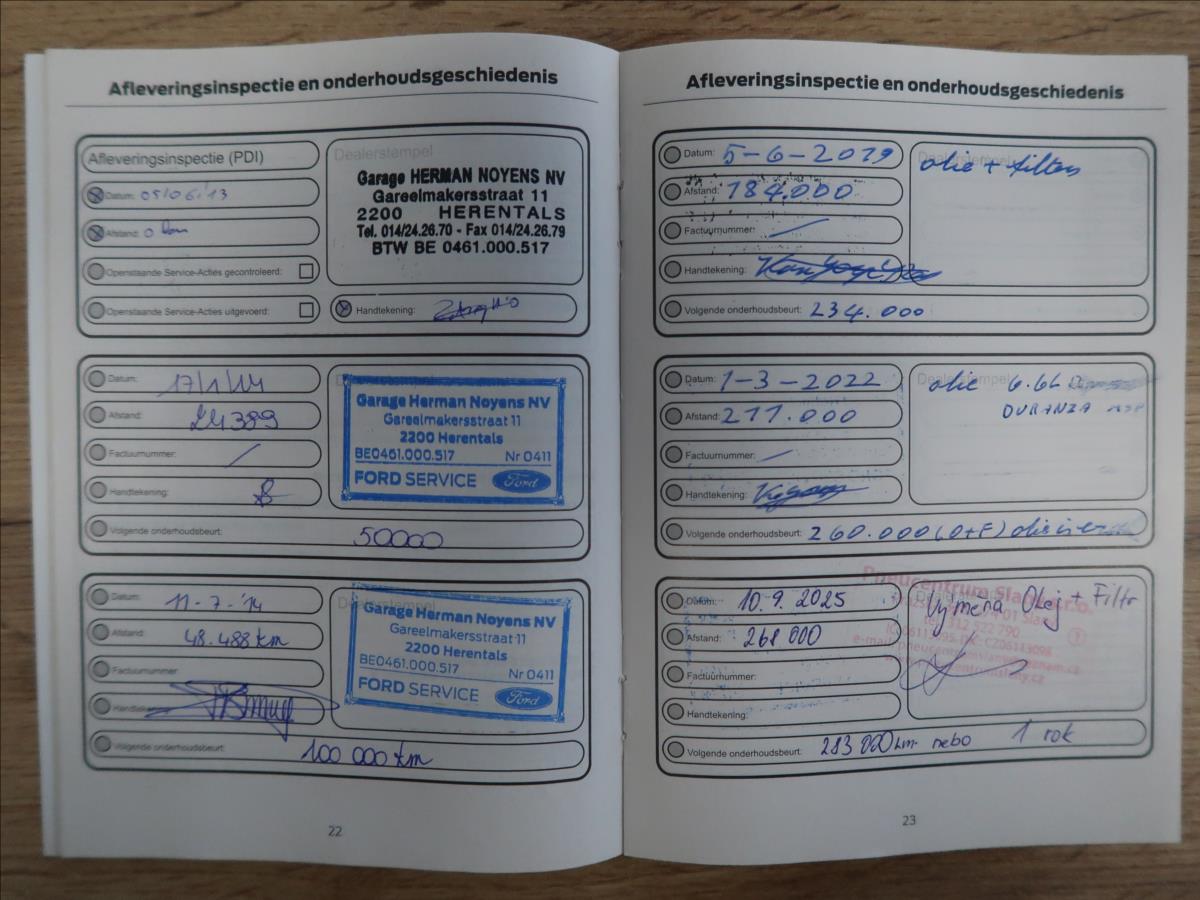 Afleveringsinspectie en onderhoudsgeschiedenis
Afleveringsinspectie (PDI)
Dealerstempel
Garage HERMAN NOYENS NV
Gareelmakersstraat 11
2200 HERENTALS
Tel. 014/24.26.70 - Fax 014/24.26.79
BTW BE 0461.000.517
Datum: 05/06/'13
Afstand: 0 km
Openstaande Service-Acties gecontroleerd:
Openstaande Service-Acties uitgevoerd:
Handtekening:
Datum: 17/1/14
Afstand: 24389
Factuurnummer: /
Handtekening:
Volgende onderhoudsbeurt: 50000
Garage Herman Noyens NV
Gareelmakersstraat 11
2200 Herentals
BE0461.000.517 Nr 0411
FORD SERVICE Ford
Datum: 11-7-'14
Afstand: 48.488 km
Factuurnummer:
Handtekening:
Volgende onderhoudsbeurt: 100 000 km
Garage Herman Noyens NV
Gareelmakersstraat 11
2200 Herentals
BE0461.000.517 Nr 0411
FORD SERVICE Ford
22
Afleveringsinspectie en onderhoudsgeschiedenis
Datum: 5-6-2019
Afstand: 184.000
Factuurnummer: /
Handtekening:
Volgende onderhoudsbeurt: 234.000
Dealerstempel
olie + filters
Datum: 1-3-2022
Afstand: 211.000
Factuurnummer: /
Handtekening:
Volgende onderhoudsbeurt: 260.000 (O+F)
Dealerstempel
olie 6.6L
Datum: 10.9.2025
Afstand: 268 000
Factuurnummer:
Handtekening:
Volgende onderhoudsbeurt: 283 000 km nebo 1 rok
Pneucentrum Slaný s.r.o.
Výměna Olej + Filtr
23